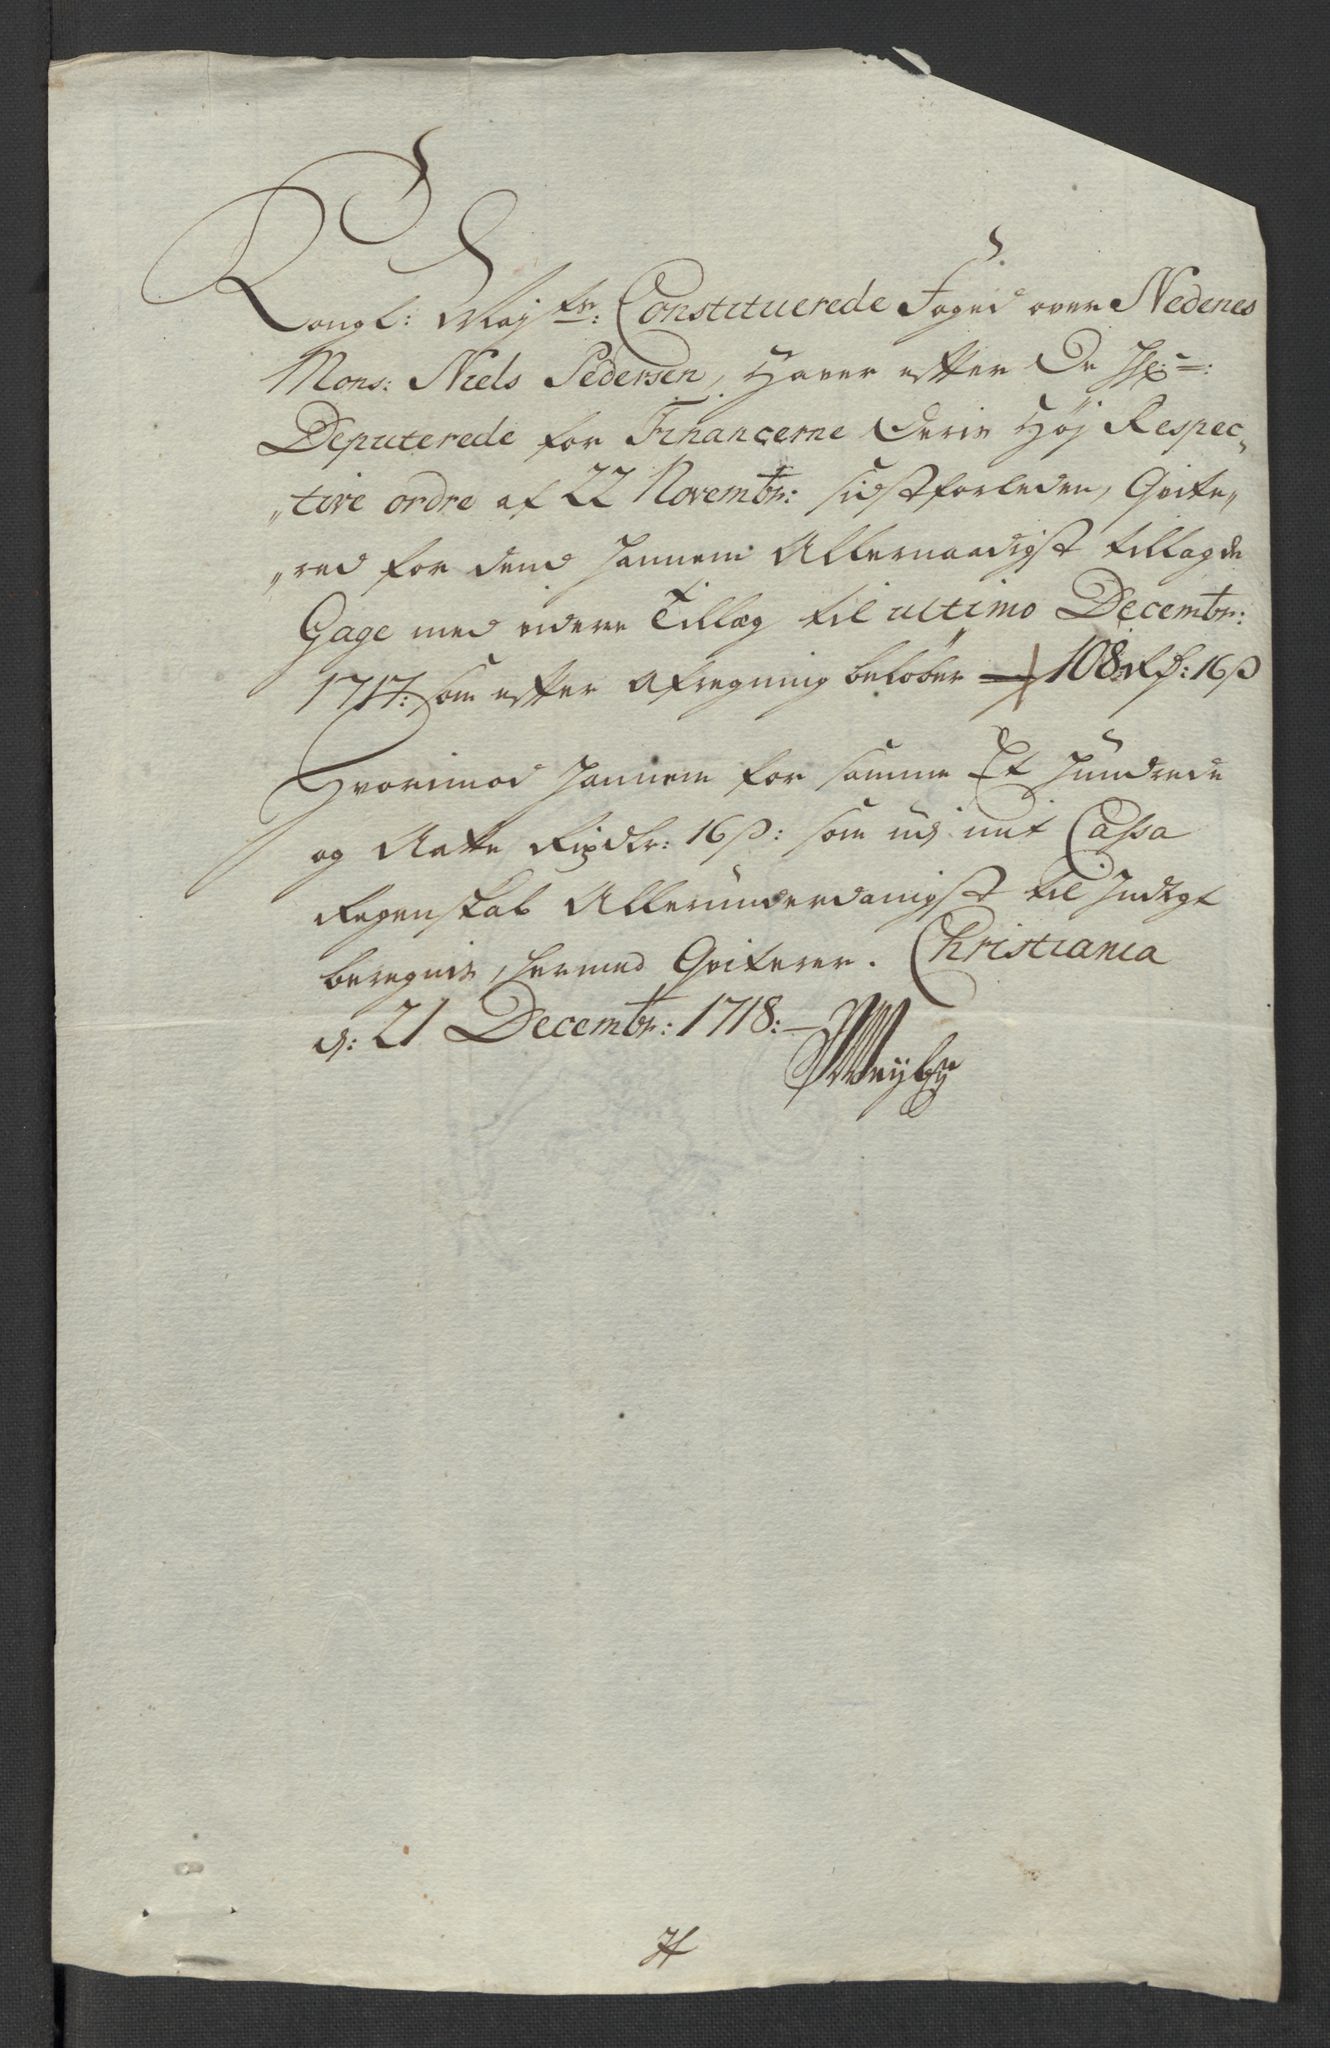 Kongl: Maÿts: Constituerede Foged over Nedenes
Mons: Niels Pedersen, Haver efter De
Deputerede for Financerne Deris Høj Respec„
„tive ordre af 22 Novembr: sidstforleden, Qvite„
„red for dend hannem Allernaadigst tillagde
Gage med videre Tillæg til ultimo Decembr:
1717. som efter afregning beløber — 108 Rd: 16 ß
Hvorimod hannem for samme Et Hundrede
og Aatte Rixdlr: 16 ß: som udj mit Cassa
Regenskab Allerunderdanigst til Indtgt
beregnis, hermed Qviterer. Christiania
d: 21 Decembr: 1718: